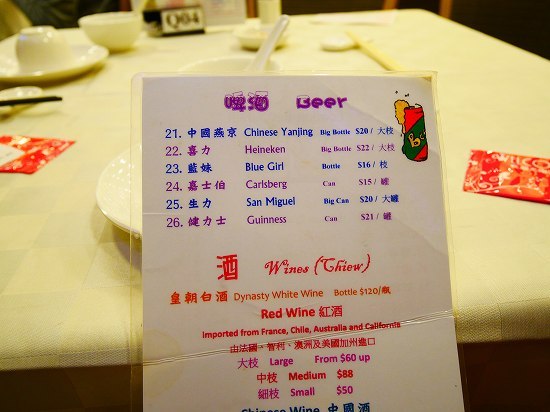 Q04
啤酒 Beer
21. 中國燕京 Chinese Yanjing Big Bottle $20 / 大枝
22. 喜力 Heineken Big Bottle $22 / 大枝
23. 藍妹 Blue Girl Bottle $16 / 枝
24. 嘉士伯 Carlsberg Can $15 / 罐
25. 生力 San Miguel Big Can $20 / 大罐
26. 健力士 Guinness Can $21 / 罐
酒 Wines (Chiew)
皇朝白酒 Dynasty White Wine Bottle $120/瓶
Red Wine 紅酒
Imported from France, Chile, Australia and California
由法國、智利、澳洲及美國加州進口
大枝 Large From $60 up
中枝 Medium $88
細枝 Small $50
Chinese Wine 中國酒